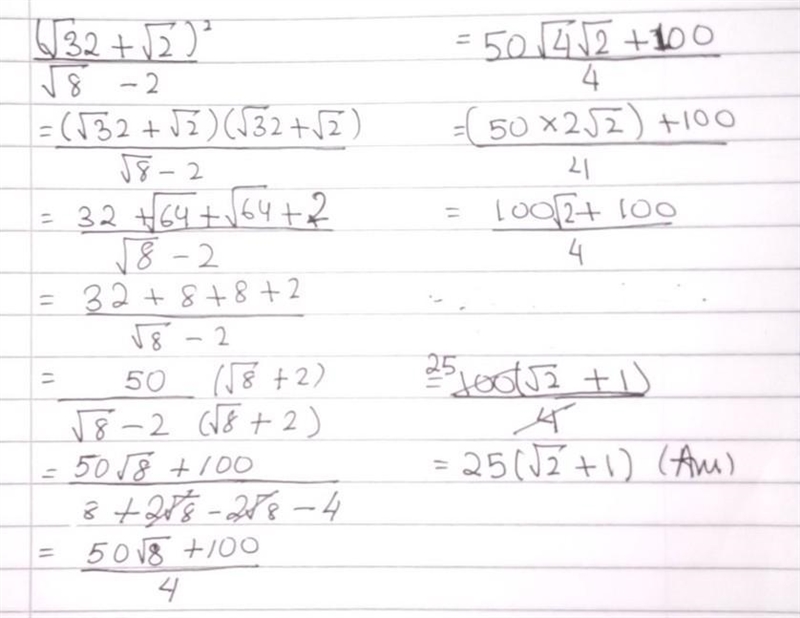 (√32 + √2)²
√8 - 2
= (√32 + √2)(√32 + √2)
√8 - 2
= 32 + √64 + √64 + 2
√8 - 2
= 32 + 8 + 8 + 2
√8 - 2
= 50 (√8 + 2)
√8 - 2 (√8 + 2)
= 50√8 + 100
8 + 2√8 - 2√8 - 4
= 50√8 + 100
4
= 50√4√2 + 100
4
= (50 × 2√2) + 100
4
= 100√2 + 100
4
25
= 100(√2 + 1)
4
= 25(√2 + 1) (Ans)